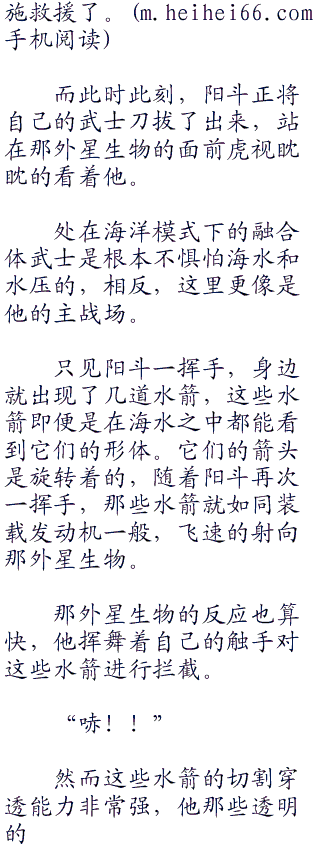 施救援了。(m.heihei66.com
手机阅读)
而此时此刻，阳斗正将
自己的武士刀拔了出来，站
在那外星生物的面前虎视眈
眈的看着他。
处在海洋模式下的融合
体武士是根本不惧怕海水和
水压的，相反，这里更像是
他的主战场。
只见阳斗一挥手，身边
就出现了几道水箭，这些水
箭即便是在海水之中都能看
到它们的形体。它们的箭头
是旋转着的，随着阳斗再次
一挥手，那些水箭就如同装
载发动机一般，飞速的射向
那外星生物。
那外星生物的反应也算
快，他挥舞着自己的触手对
这些水箭进行拦截。
“哧！！”
然而这些水箭的切割穿
透能力非常强，他那些透明
的